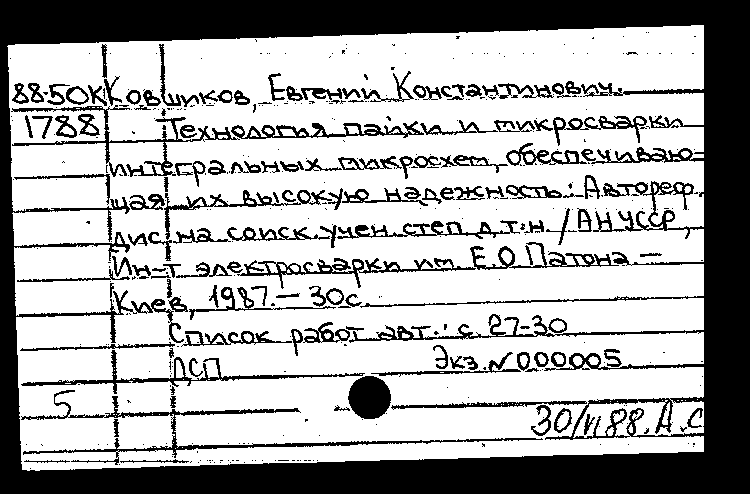 88-50К Ковшиков, Евгений Константинович.
1788 Технология пайки и микросварки
интегральных микросхем, обеспечиваю=
щая их высокую надежность: Автореф.
дис. на соиск. учен. степ д.т.н. / АН УССР,
Ин-т электросварки им. Е.О Патона. —
Киев, 1987. — 30с.
Список работ авт.: с. 27-30
ДСП Экз. №000005.
5
30/VI 88. А.С